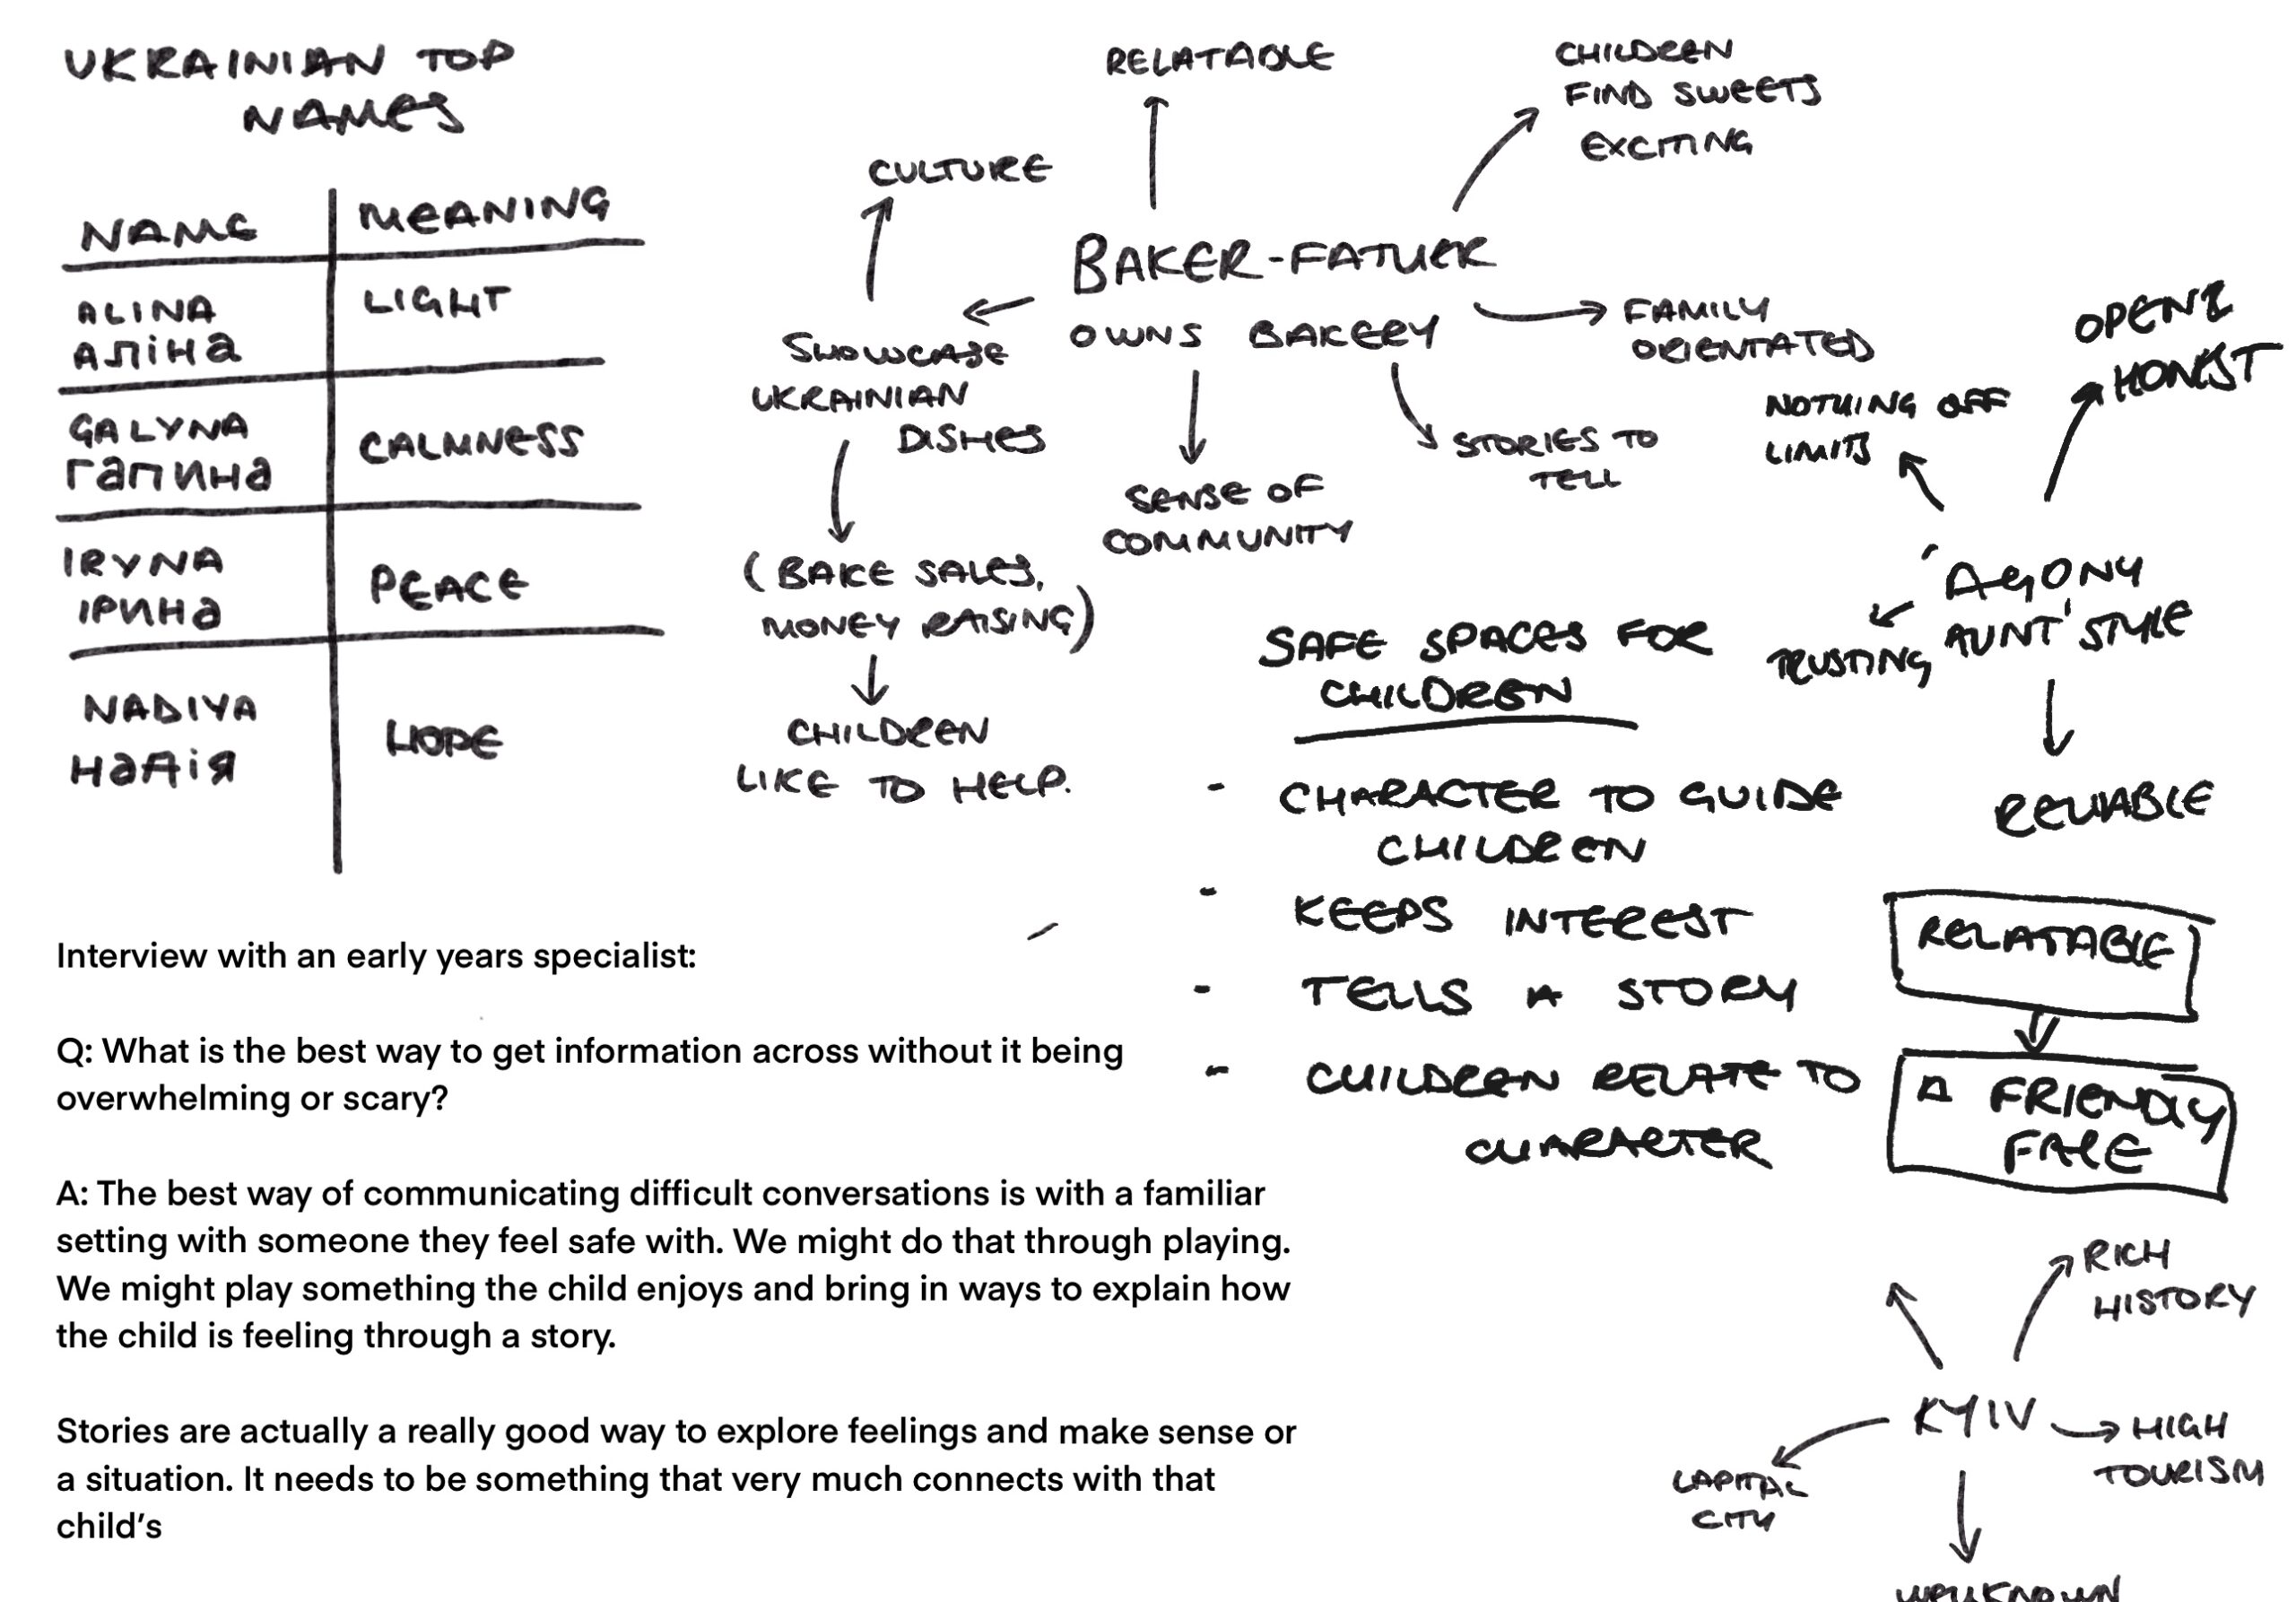 UKRAINIAN TOP
NAMES
NAME MEANING
ALINA LIGHT
аліна
GALYNA CALMNESS
гапина
IRYNA PEACE
ірина
NADIYA HOPE
надія
RELATABLE
CHILDREN
FIND SWEETS
EXCITING
CULTURE
BAKER-FATHER
OWNS BAKERY
SHOWCASE
UKRAINIAN
DISHES
(BAKE SALES,
MONEY RAISING)
CHILDREN
LIKE TO HELP.
SENSE OF
COMMUNITY
STORIES TO
TELL
FAMILY
ORIENTATED
OPEN &
HONEST
NOTHING OFF
LIMITS
'AGONY
AUNT' STYLE
TRUSTING
RELIABLE
SAFE SPACES FOR
CHILDREN
- CHARACTER TO GUIDE
CHILDREN
- KEEPS INTEREST
- TELLS A STORY
- CHILDREN RELATE TO
CHARACTER
RELATABLE
A FRIENDLY
FACE
Interview with an early years specialist:
Q: What is the best way to get information across without it being
overwhelming or scary?
A: The best way of communicating difficult conversations is with a familiar
setting with someone they feel safe with. We might do that through playing.
We might play something the child enjoys and bring in ways to explain how
the child is feeling through a story.
Stories are actually a really good way to explore feelings and make sense or
a situation. It needs to be something that very much connects with that
child's
RICH
HISTORY
KYIV
HIGH
TOURISM
CAPITAL
CITY
WELLKNOWN